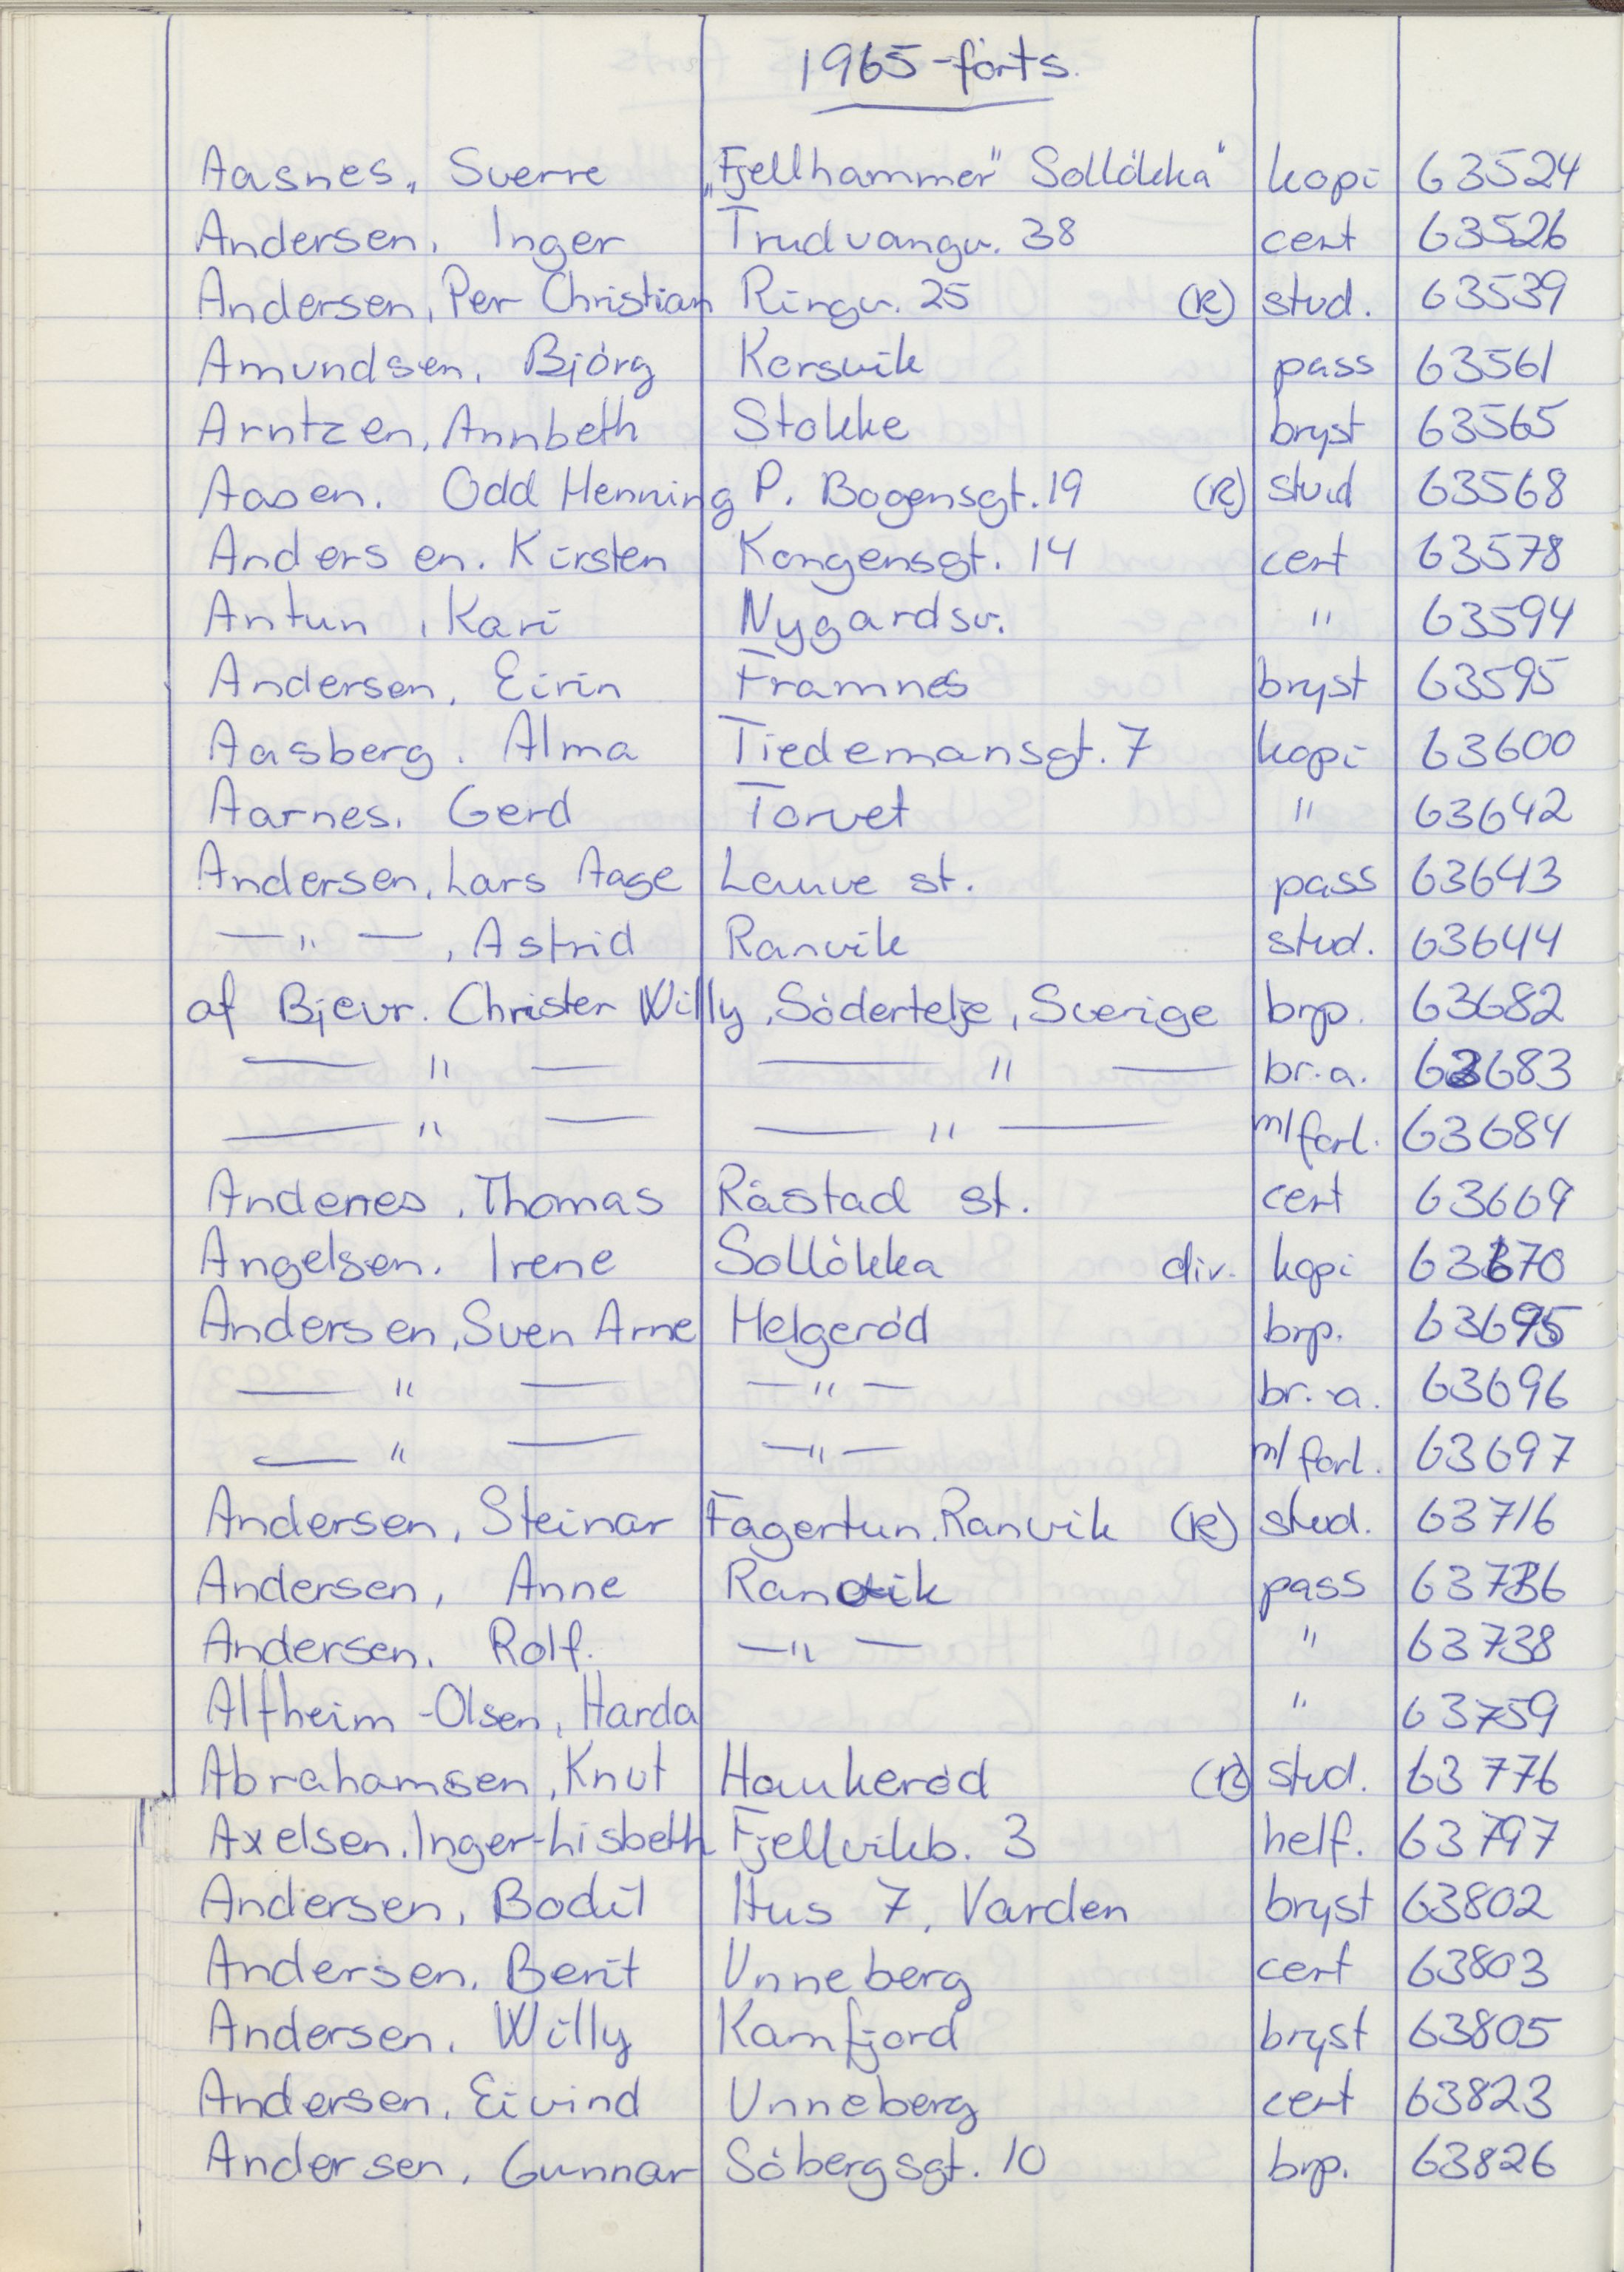 1965-forts.
Aasnes, Sverre „Fjellhammer" Solløkka" kopi 63524
Andersen, Inger Trudvangv. 38 cert 63526
Andersen, Per Christian Ringv. 25 (R) stud. 63539
Amundsen, Bjórg Korsvik pass 63561
Arntzen, Annbeth Stokke bryst 63565
Aasen. Odd Henning P. Bogensgt. 19 (R) stud 63568
Andersen. Kirsten Kongensgt. 14 cert 63578
Antun, Kari Nygardsv. " 63594
Andersen, Eirin Framnes bryst 63595
Aasberg. Alma Tiedemansgt. 7 kopi 63600
Aarnes. Gerd Torvet " 63642
Andersen, Lars Aage Lauve st. pass 63643
— " —, Astrid Ranvik stud. 63644
af Bjevr. Christer Willy, Södertelje, Sverige brp. 63682
— " — — " — br.a. 63683
— " — — " — m/forl. 63684
Andenes, Thomas Råstad st. cert 63669
Angelsen. Irene Sollókka div. kopi 63670
Andersen, Sven Arne Helgeród brp. 63695
— " — — " — br.a. 63696
— " — — " — m/forl. 63697
Andersen, Steinar Fagertun. Ranvik (R) stud. 63716
Andersen, Anne Ranvik pass 63736
Andersen. Rolf. — " — " 63738
Alfheim-Olsen, Harda " 63759
Abrahamsen, Knut Haukeród (R) stud. 63776
Axelsen. Inger-Lisbeth Fjellvikb. 3 helf. 63797
Andersen, Bodil Hus 7, Varden bryst 63802
Andersen. Berit Unneberg cert 63803
Andersen. Willy Kamfjord bryst 63805
Andersen. Eivind Unneberg cert 63823
Andersen, Gunnar Sóbergsgt. 10 brp. 63826